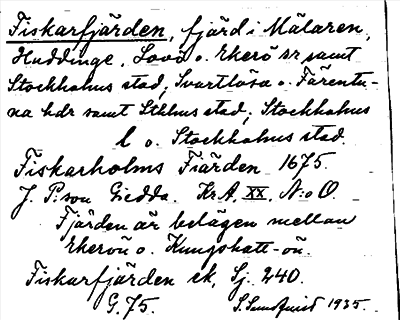 Fiskarfjärden, fjärd i Mälaren,
Huddinge, Lovö o. Ekerö sr samt
Stockholms stad, Svartlösa o. Färentu-
na hdr samt Sthlms stad, Stockholms
l o. Stockholms stad.
Fiskarholms Fiärden 1675
J. P:son Giedda. Kr A. XX. N:o O.
Fjärden är belägen mellan
Ekerön o. Kungshatt-ön.
Fiskarfjärden ek, Sj. 240.
G. 75. S. Sundquist 1935.